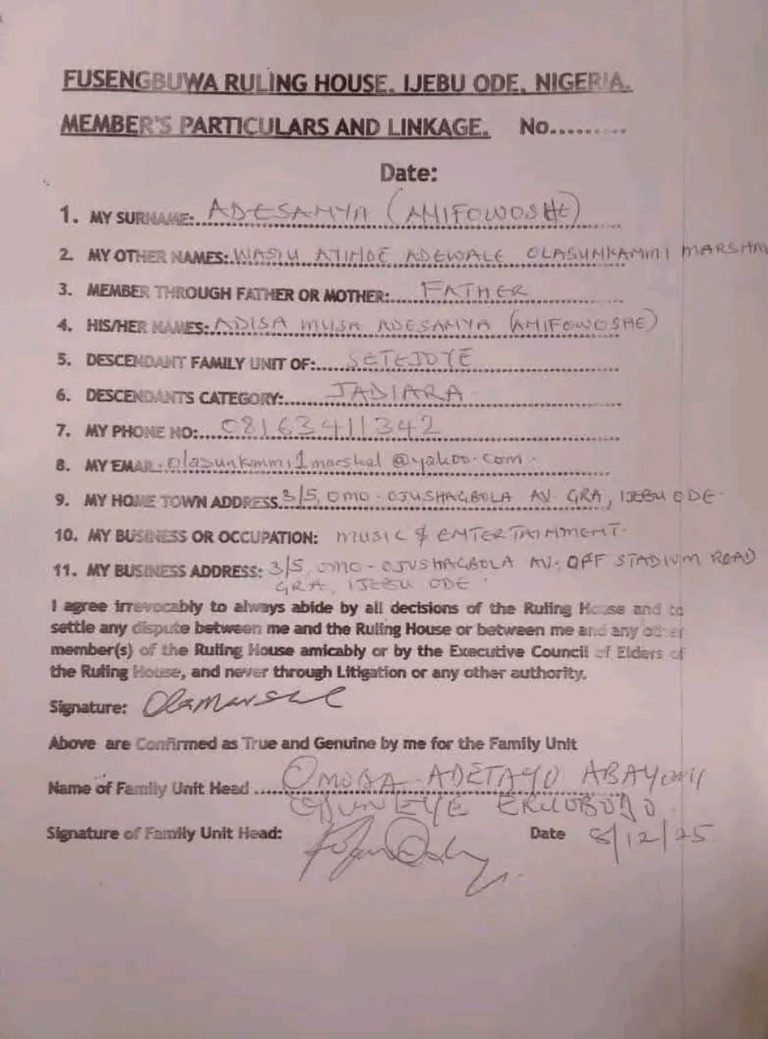 FUSENGBUWA RULING HOUSE, IJEBU ODE, NIGERIA.
MEMBER'S PARTICULARS AND LINKAGE. No..........
Date:
1. MY SURNAME: ADESANYA (ANIFOWOSHE)
2. MY OTHER NAMES: WASIU ADEWALE OLASUNKANMI MARSHAL
3. MEMBER THROUGH FATHER OR MOTHER: FATHER
4. HIS/HER NAMES: ADISA MUSA ADESANYA (ANIFOWOSHE)
5. DESCENDANT FAMILY UNIT OF: SETEJOYE
6. DESCENDANTS CATEGORY: JADIARA
7. MY PHONE NO: 08163411342
8. MY EMAIL: olasunkanmi1marshal@yahoo.com.
9. MY HOME TOWN ADDRESS 3/5, OMO-OJUSHAGBOLA AV. GRA, IJEBU ODE
10. MY BUSINESS OR OCCUPATION: MUSIC & ENTERTAINMENT.
11. MY BUSINESS ADDRESS: 3/5, OMO-OJUSHAGBOLA AV. OFF STADIUM ROAD
GRA, IJEBU ODE
I agree irrevocably to always abide by all decisions of the Ruling House and to
settle any dispute between me and the Ruling House or between me and any other
member(s) of the Ruling House amicably or by the Executive Council of Elders of
the Ruling House, and never through Litigation or any other authority.
Signature: Olamarshal
Above are Confirmed as True and Genuine by me for the Family Unit
Name of Family Unit Head OMOBA ADETAYO ABAYOMI
ODUNEYE ERUOBODO
Signature of Family Unit Head:
Date 8/12/25